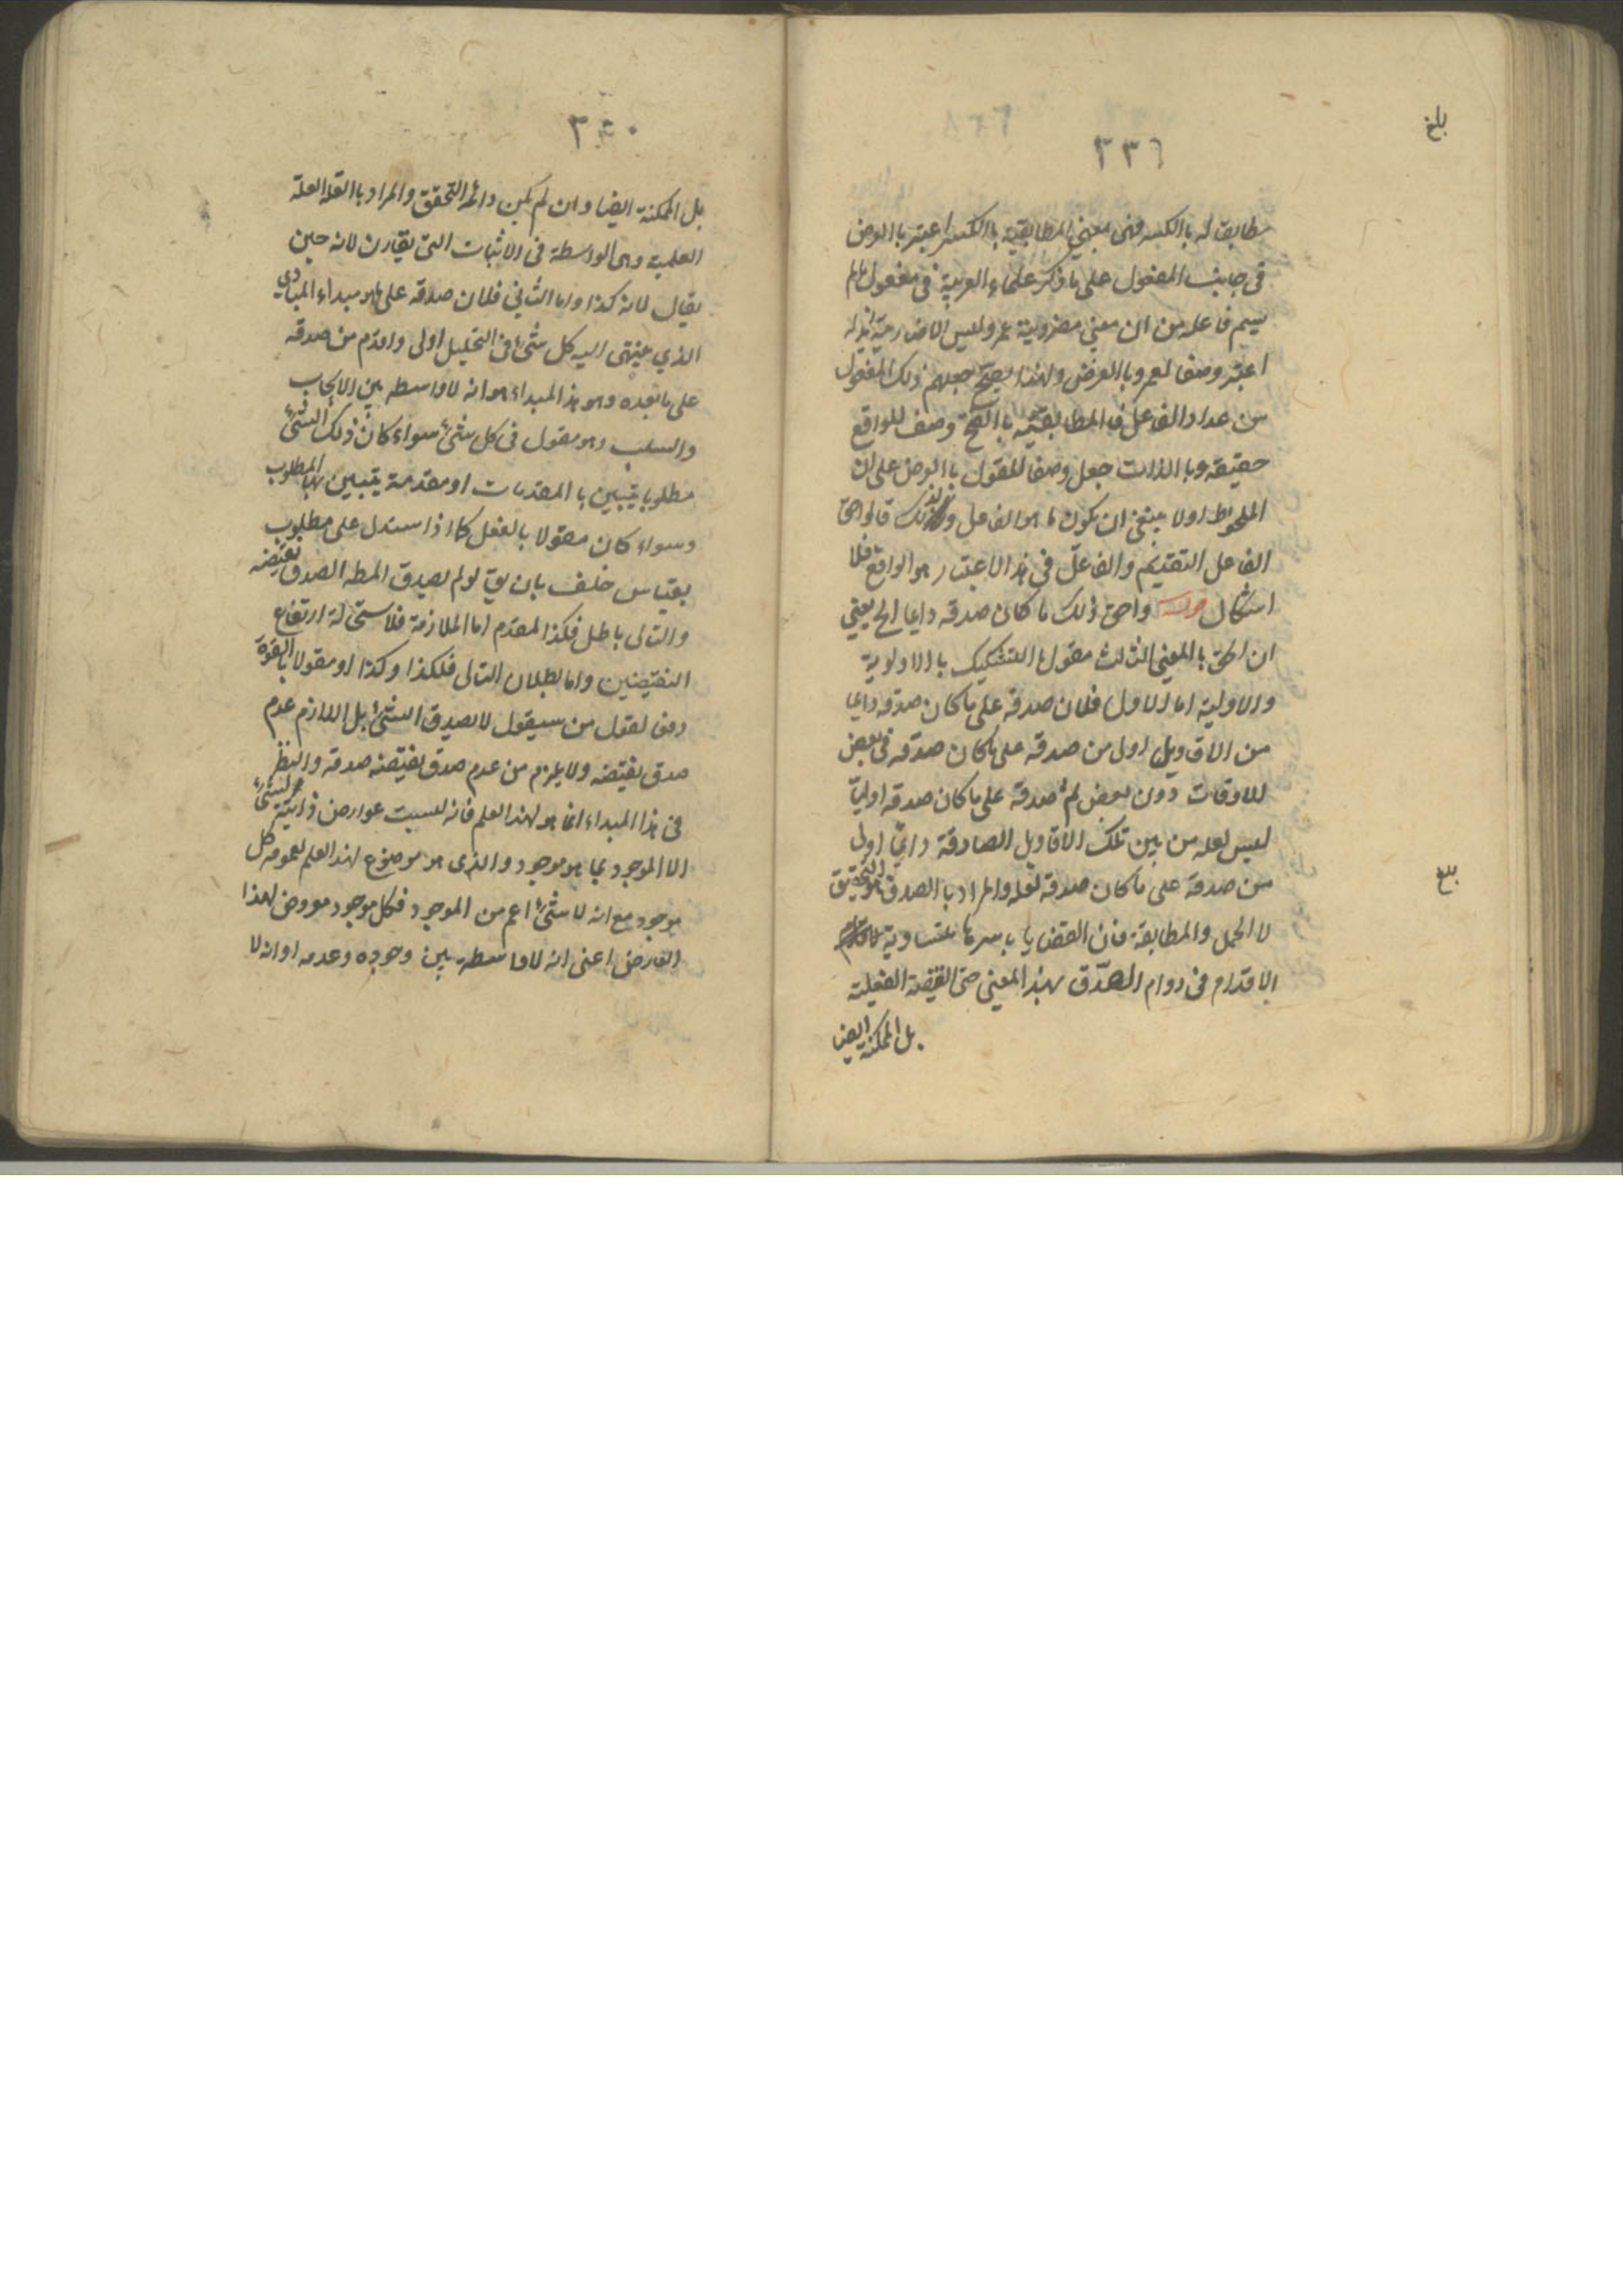 بلغ
٣٣٦
مطابق له بالكسر فهى بمعنى المطابقية باالكسر اعتبر باالعرض
فى جانب المفعول على ما ذكر علماء العربية فى مفعول مالم
يسم فاعله من ان معنى مضروبية عمرو ليس الا ضاربية زيد له
اعتبر وصفا لعمرو باالعرض ولهذا يصح جعلهم ذلك المفعول
من عداد الفاعل فالمطابقية باالفتح وصف للواقع
حقيقة وباالذات جعل وصفا للمقول باالعرض على ان
الملحوظ اولا ينبغى ان يكون ما هو الفاعل ولذلك قالوا حق
الفاعل التقديم والفاعل فى هذا الاعتبار هو الواقع فلا
اشكال قوله واحق ذلك ما كان صدقه دايما الخ يعنى
ان الحق باالمعنى الثالث مقول باالتشكيك باالاولوية
والاولية اما الاول فلان صدقه على ما كان صدقه دايما
من الاقاويل اولى من صدقه على ما كان صدقه فى بعض
الاوقات دون بعض ثم صدقه على ما كان صدقه اوليا
ليس لعلة من بين تلك الاقاويل الصادقة دايما اولى
من صدقه على ما كان صدقه لعلة والمراد باالصدق هو التحقيق
بلغ
لا الحمل والمطابقة فان القضايا باسرها متساوية
الاقدام فى دوام الصدق بهذا المعنى حتى القضية الفعلية
بل الممكنة ايضا
٣٤٠
بل الممكنة ايضا وان لم يكن دائمة التحقق والمراد باالعلة العلة
العلمية وهى الواسطة فى الاثبات التى يقارن لانه حين
يقال لانه كذا واما الثانى فلان صدقه على ما هو مبداء المبادى
الذي ينتهى اليه كل شىء فى التحليل اولى واقدم من صدقه
على ما بعده وهو هذا المبداء هو انه لا واسطه بين الايجاب
والسلب وهو مقول فى كل شىء سواء كان ذلك الشىء
مطلوبا يتبين باالمقدمات او مقدمة يتبين بها المطلوب
وسواء كان مقولا بالفعل كما اذا استدل على مطلوب
بقياس خلف بان يق لو لم يصدق المط لصدق نقيضه
والتالى باطل فكذا المقدم اما الملازمة فلاستحالة ارتفاع
النقيضين واما بطلان التالى فلكذا وكذا او مقولا باالقوة
دفى لقول من سيقول لا يصدق الشىء بل اللازم عدم
صدق نقيضه ولا يلزم من عدم صدق نقيضه صدقه والنظر
فى هذا المبداء انما هو لهذا العلم فانه ليست عوارض ذاتية لشىء
الا الموجود بما هو موجود والذى هو موضوع لهذا العلم لعمومه كل
موجود مع انه لا شىء اعم من الموجود فكل موجود معروض لهذا
العارض اعنى انه لا واسطة بين وجوده وعدمه او انه لا